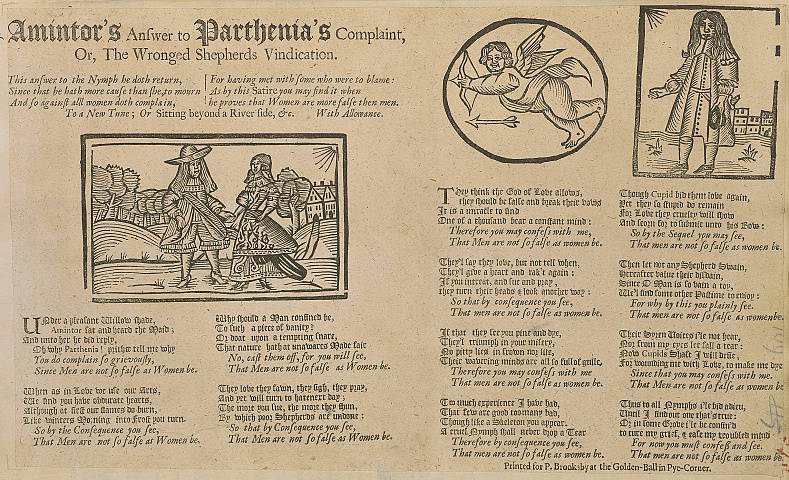 Amintor's Answer to Parthenia's Complaint,
Or, The Wronged Shepherds Vindication.
This answer to the Nymph he doth return,
Since that he hath more cause than she, to mourn
And so against all women doth complain,
For having met with some who were to blame:
As by this Satire you may find it when
he proves that Women are more false then men.
To a New Tune; Or Sitting beyond a River side, &c. With Allowance.
UNder a pleasant Willow shade,
Amintor sat and heard the Maid;
And unto her he did reply,
Oh why Parthenia! prithee tell me why
You do complain so grievously,
Since Men are not so false as Women be.
When as in Love we use our Arts,
We find you have obdurate hearts,
Although at first our flames do burn,
Like winters Morning into Frost you turn.
So by the Consequence you see,
That Men are not so false as Women be.
Why should a Man confined be,
To such a piece of vanity?
Or doat upon a tempting snare,
That nature hath at unawares Made fair
No, cast them off, for you will see,
That Men are not so false as Women be.
They love they fawn, they sigh, they pray,
And yet will turn to hate next day;
The more you sue, the more they shun,
By which poor Shepherds are undone:
So that by Consequence you see,
That Men are not so false as Women be.
THey think the God of Love allows,
they should be false and break their vows
It is a miracle to find
One of a thousand bear a constant mind:
Therefore you may confess with me,
That Men are not so false as women be.
They'll say they love, but not tell when,
They'll give a heart and tak't again:
If you intreat, and sue and pray,
they turn their heads & look another way:
So that by consequence you see,
That Men are not so false as women be.
If that they see you pine and dye,
They'll triumph in your misery,
No pitty lies in frown nor lie,
Their wavering minds are all so full of guile,
Therefore you may confess with me
That men are not so false as women be.
Too much experience I have had,
That few are good too many bad,
Though like a Skeleton you appear.
A cruel Nymph shall never drop a Tear
Therefore by consequence you see,
That men are not so false as women be.
Though Cupid bid them love again,
Yet they so stupid do remain
For Love they cruelty will show
And scorn for to submit unto his Bow:
So by the Sequel you may see,
That men are not so false as women be.
Then let not any Shepherd Swain,
Hereafter value their disdain,
Since O Man is so vain a toy,
We'l find some other Pastime to enjoy:
For why by this you plainly see.
That men are not so false as women be.
Their Syren Voices i'le not hear,
Nor from my eyes let fall a tear
Now Cupids Shaft I will defie,
For wounding me with Love, to make me dye
Since that you may confess with me.
That Men are not so false as Women be
Thus to all Nymphs i'le bid adieu,
Until I find out one that's true:
Or in some Grove i'le be confin'd
to cure my grief, & ease my troubled mind
For now you must confess and see.
That men are not so false as women be.
Printed for P. Brooksby at the Golden-Ball in Pye-Corner.